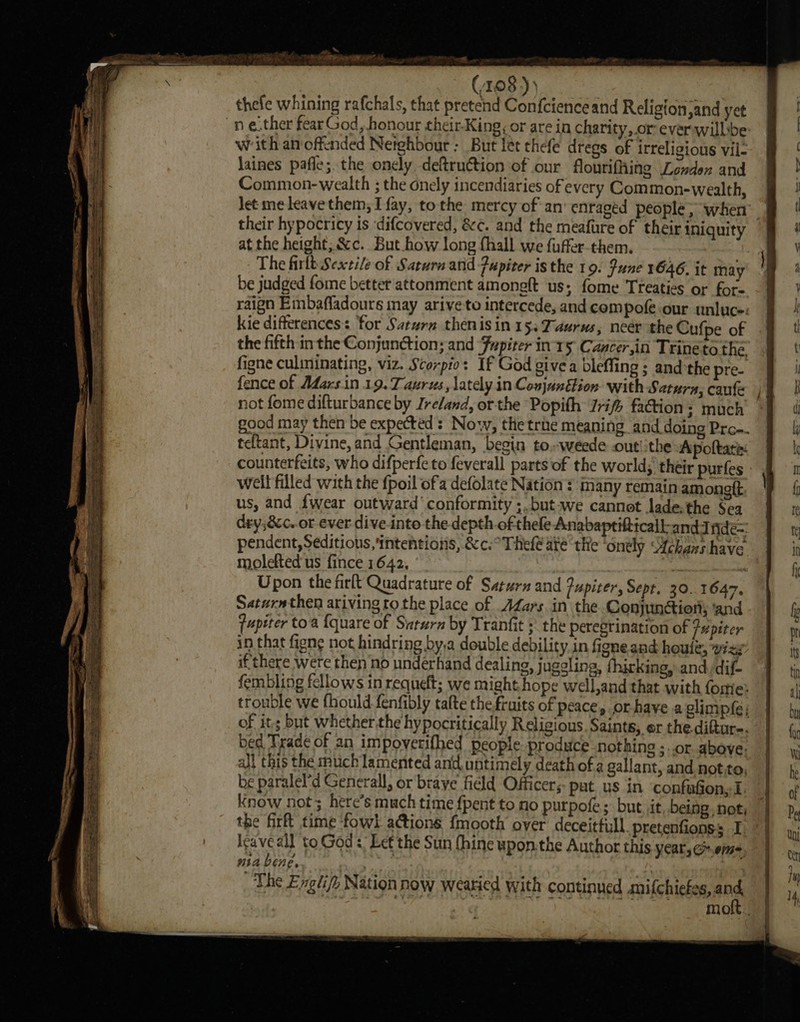 (108)
these whining raschals, that pretend Conscience and Religion, and yet
neither fear God, honour their King, or are in charity, or ever will be
with an offended Neighbour: But let these dregs of irreligious vil-
laines passe; the onely destruction of our flourishing London and
Common-wealth; the onely incendiaries of every Common-wealth,
let me leave them, I say, to the mercy of an enraged people, when
their hypocricy is discovered, &c. and the measure of their iniquity
at the height, &c. But how long shall we suffer them.
The first Sextile of Saturn and Jupiter is the 19. June 1646. it may
be judged some better attonment amongst us; some Treaties or for-
raign Embassadours may arive to intercede, and compose our unluc-
kie differences: for Saturn then is in 15. Taurus, neer the Cuspe of
the fifth in the Conjunction; and Jupiter in 15 Cancer, in Trine to the
signe culminating, viz. Scorpio: If God give a blessing; and the pre-
sence of Mars in 19. Taurus, lately in Conjunction with Saturn, cause
not some disturbance by Ireland, or the Popish Irish faction; much
good may then be expected: Now, the true meaning and doing Pro-
testant, Divine, and Gentleman, begin to weede out the Apostatis
counterfeits, who disperse to severall parts of the world, their purses
well filled with the spoil of a desolate Nation: many remain amongst
us, and swear outward conformity; but we cannot lade the Sea
dry, &c. or ever dive into the depth of these Anabaptisticall and Inde-
pendent, Seditious, intentions, &c. These are the onely Achans have
molested us since 1642.
Upon the first Quadrature of Saturn and Jupiter, Sept. 30. 1647.
Saturn then ariving to the place of Mars in the Conjunction, and
Jupiter to a square of Saturn by Transit; the peregrination of Jupiter
in that signe not hindring by a double debility in signe and house, viz:
if there were then no underhand dealing, jugeling, shirking, and dis-
sembling fellows in request; we might hope well, and that with some
trouble we should sensibly taste the fruits of peace, or have a glimpse
of it; but whether the hypocritically Religious Saints, or the distur-
bed Trade of an impoverished people produce nothing; or above
all this the much lamented and untimely death of a gallant, and not to
be paralel'd Generall, or brave field Officers put us in confusion, I
know not; here's much time spent to no purpose; but it being not
the first time fowl actions smooth over deceitfull pretensions; I
leave all to God: Let the Sun shine upon the Author this year, & om-
nia bene.
The English Nation now wearied with continued mischiefes, and
most